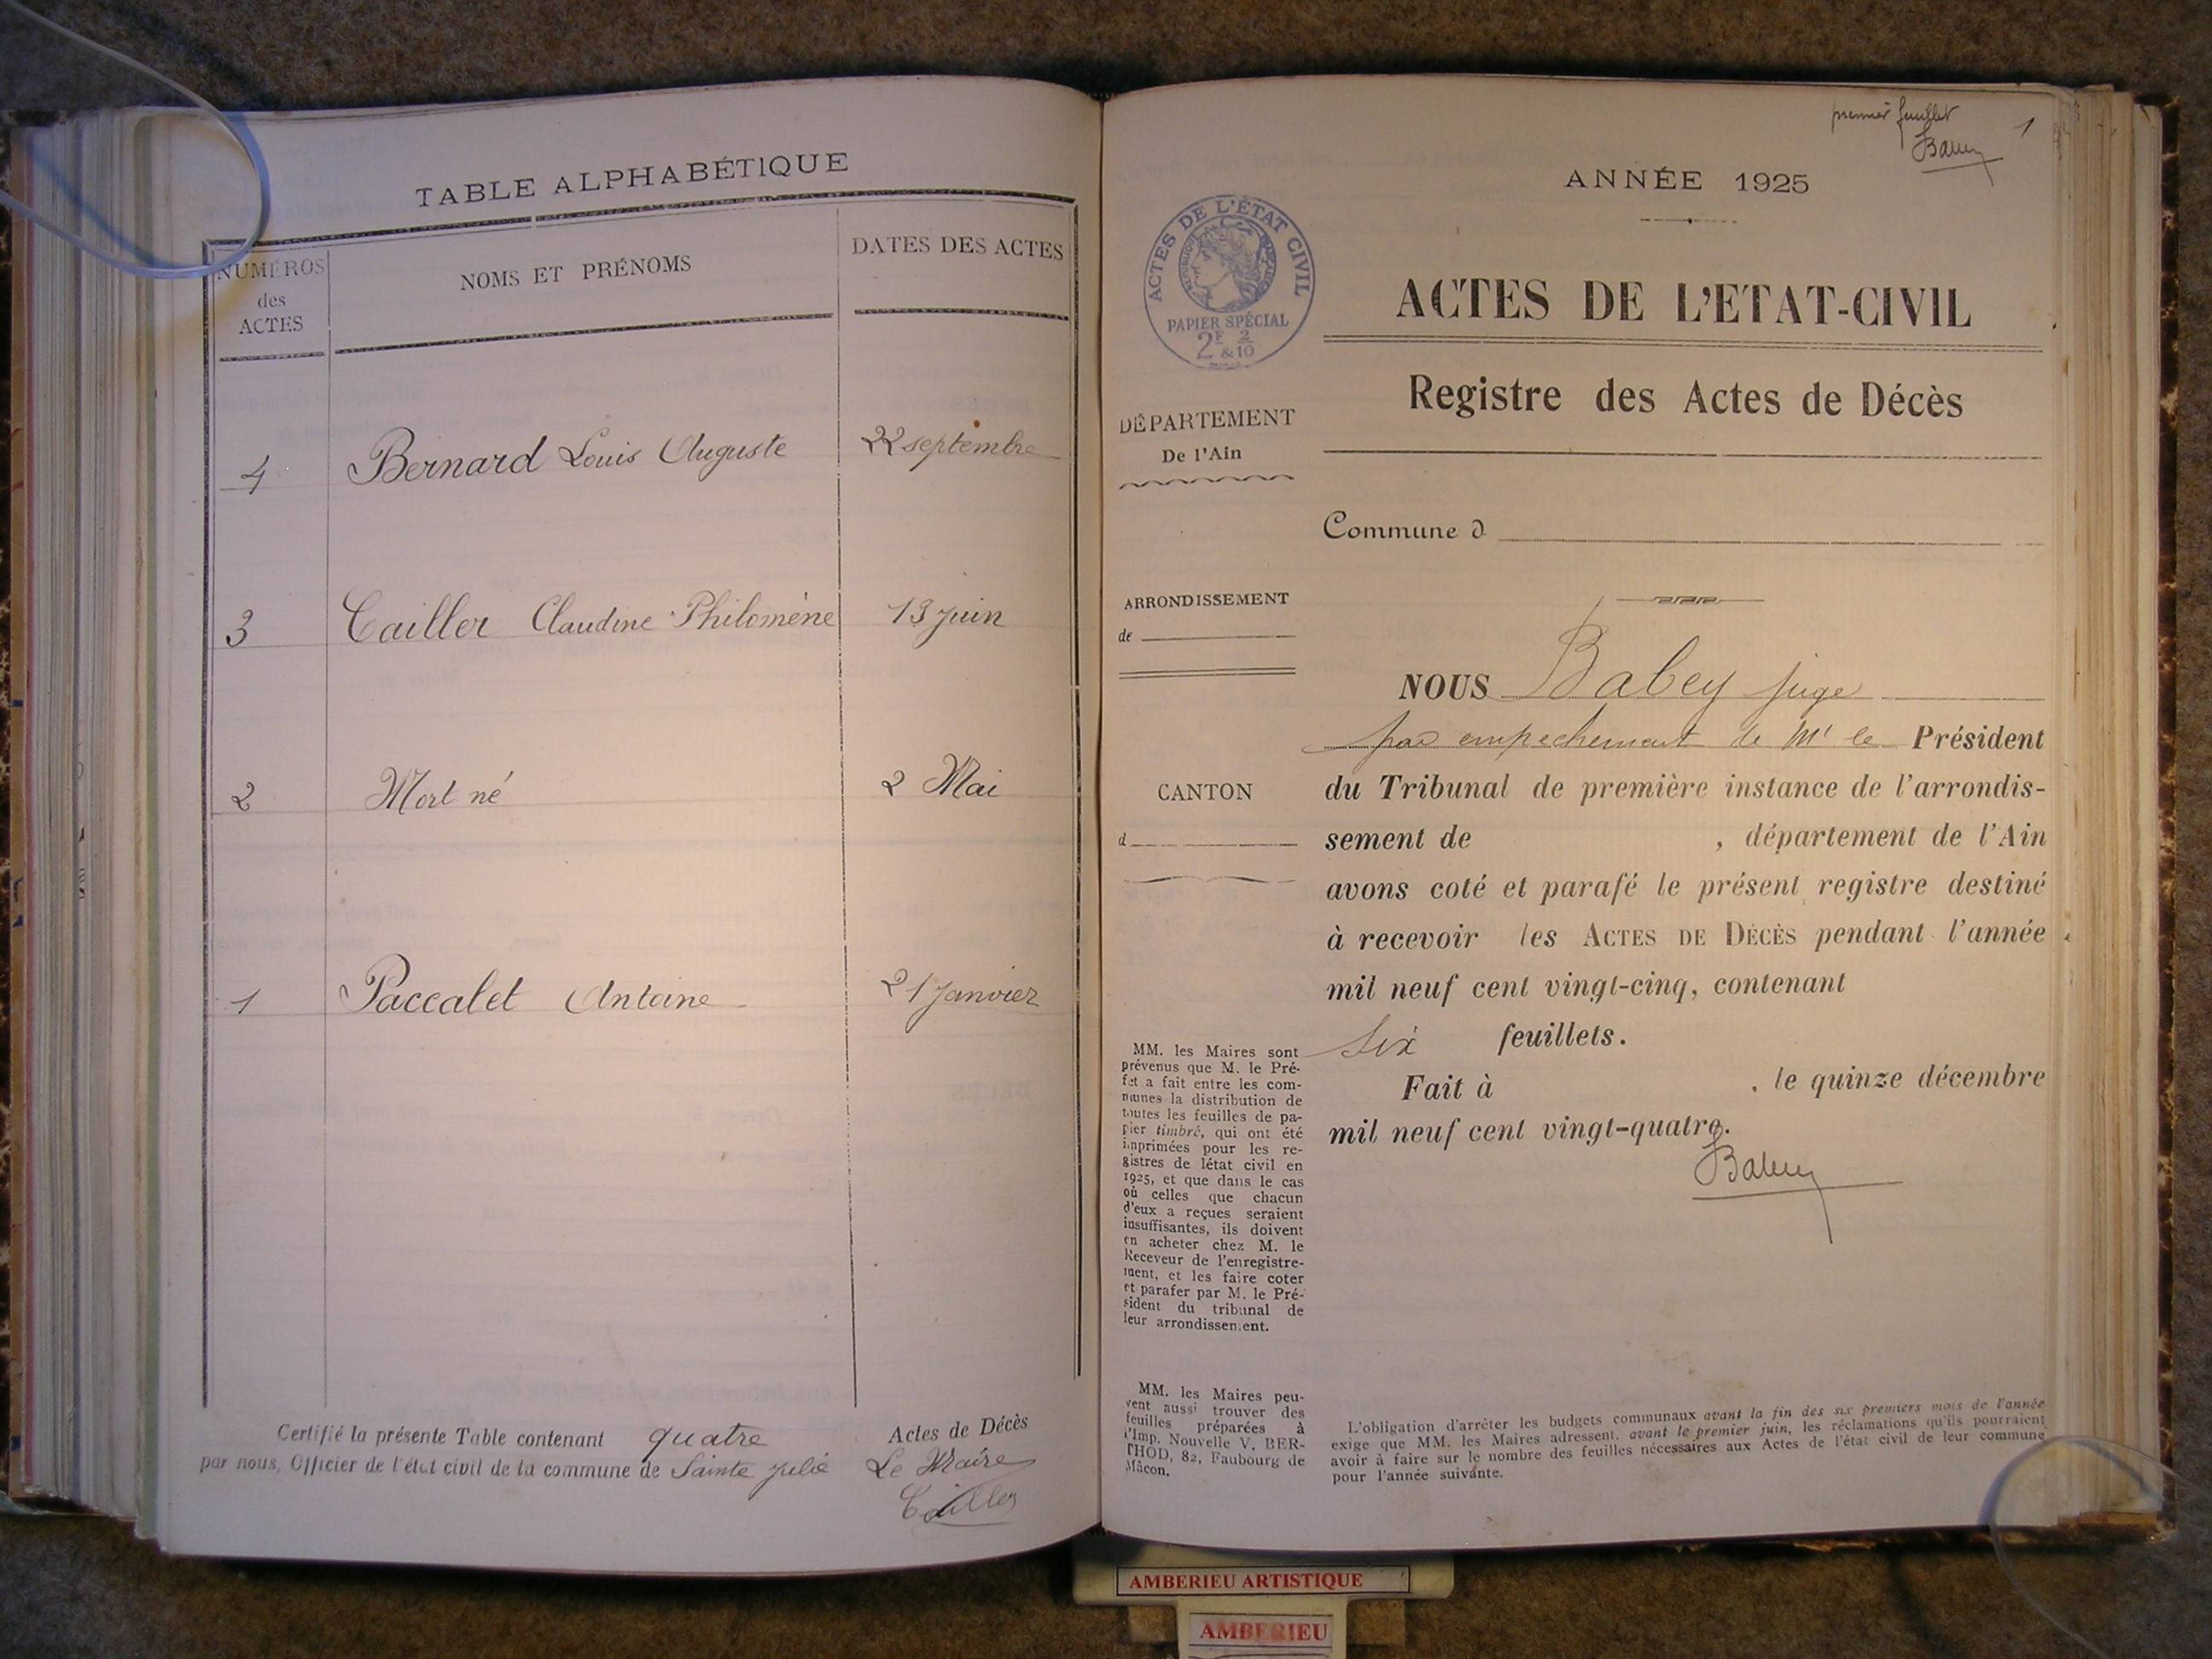 TABLE ALPHABÉTIQUE
NUMÉROS
des
ACTES
NOMS ET PRÉNOMS
DATES DES ACTES
4 Bernard Louis Auguste 22 septembre
3 Cailler Claudine Philomène 13 juin
2 Mort né 2 Mai
1 Paccalet Antoine 21 Janvier
Certifié la présente Table contenant quatre Actes de Décès
par nous, Officier de l'état civil de la commune de Sainte Julie Le Maire
Cailler
premier feuillet 1
Babey
ANNÉE 1925
ACTES DE L'ÉTAT CIVIL
RÉPUBLIQUE FRANÇAISE
PAPIER SPÉCIAL
2F 2
& 10
ACTES DE L'ETAT-CIVIL
Registre des Actes de Décès
DÉPARTEMENT
De l'Ain
Commune d
ARRONDISSEMENT
de
CANTON
d
NOUS Babey juge
par empechement de Mr le Président
du Tribunal de première instance de l'arrondis-
sement de , département de l'Ain
avons coté et parafé le présent registre destiné
à recevoir les ACTES DE DÉCÈS pendant l'année
mil neuf cent vingt-cinq, contenant
Six feuillets.
Fait à , le quinze décembre
mil neuf cent vingt-quatre.
Babey
MM. les Maires sont
prévenus que M. le Pré-
fet a fait entre les com-
munes la distribution de
toutes les feuilles de pa-
pier timbré, qui ont été
imprimées pour les re-
gistres de létat civil en
1925, et que dans le cas
où celles que chacun
d'eux a reçues seraient
insuffisantes, ils doivent
en acheter chez M. le
Receveur de l'enregistre-
ment, et les faire coter
et parafer par M. le Pré-
sident du tribunal de
leur arrondissement.
MM. les Maires peu-
vent aussi trouver des
feuilles préparées à
l'Imp. Nouvelle V. BER-
THOD, 82, Faubourg de
Mâcon.
L'obligation d'arrêter les budgets communaux avant la fin des six premiers mois de l'année
exige que MM. les Maires adressent, avant le premier juin, les réclamations qu'ils pourraient
avoir à faire sur le nombre des feuilles nécessaires aux Actes de l'état civil de leur commune
pour l'année suivante.
AMBERIEU ARTISTIQUE
AMBERIEU